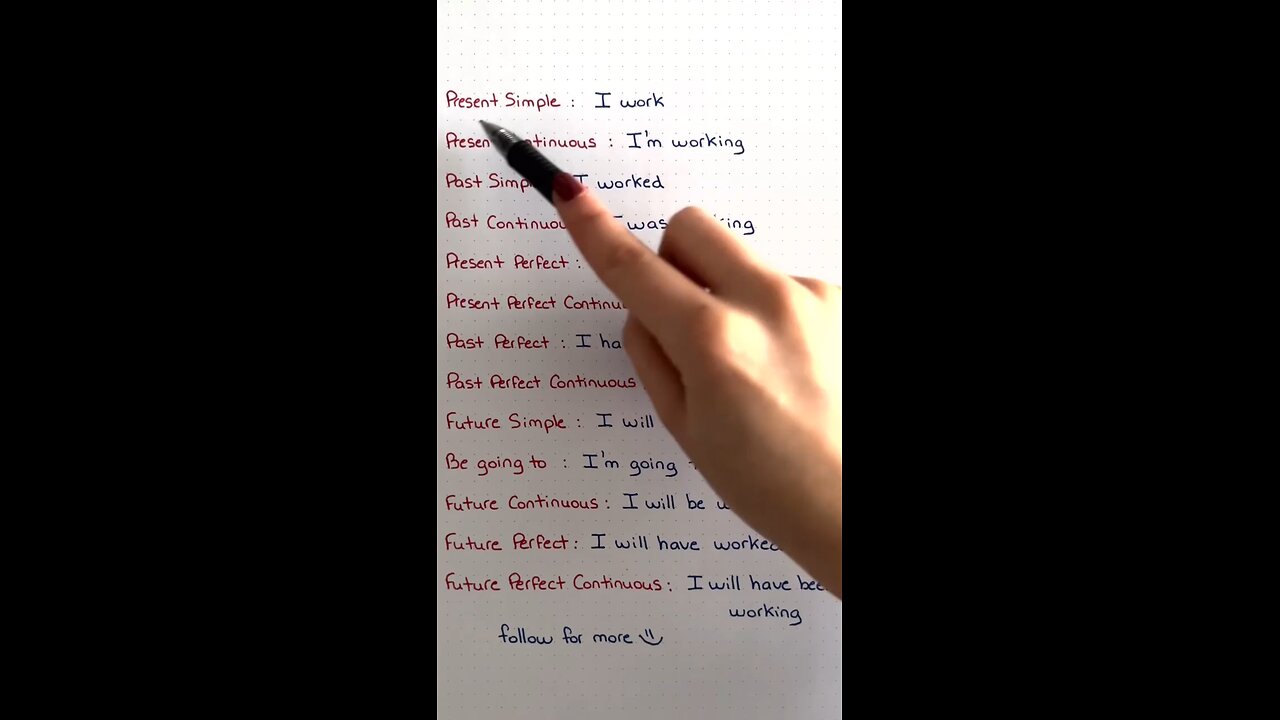 Present Simple : I work
Present Continuous : I'm working
Past Simple I worked
Past Continuous I was working
Present Perfect :
Present Perfect Continuous
Past Perfect : I
Past Perfect Continuous
Future Simple : I will
Be going to : I'm going
Future Continuous : I will be
Future Perfect : I will have worked
Future Perfect Continuous : I will have been
working
follow for more